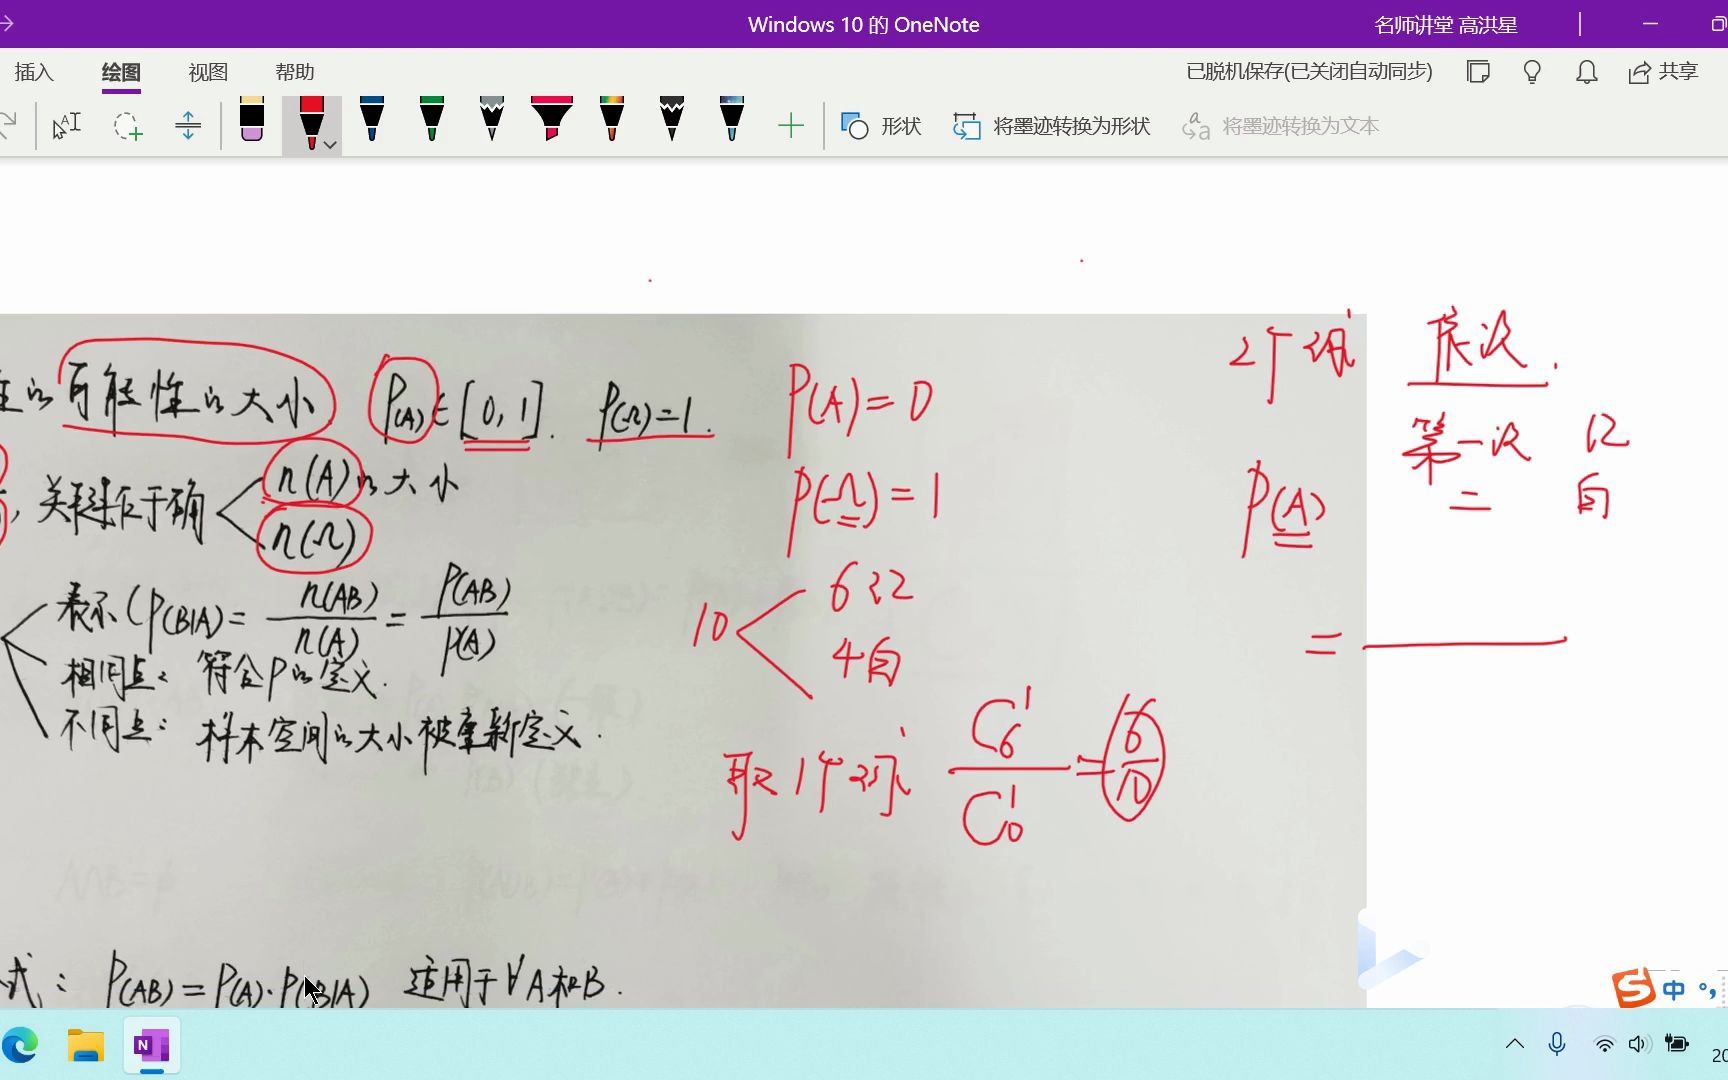 Windows 10 的 OneNote
名师讲堂 高洪星
插入 绘图 视图 帮助
已脱机保存(已关闭自动同步) 共享
形状 将墨迹转换为形状 将墨迹转换为文本
的可能性的大小 P(A)∈[0,1]. P(Ω)=1.
P(A)=0
2个球 依次.
第一次 红
二 白
,关键在于确 n(A)的大小
n(Ω)
P(Ω)=1
P(A)
=
表示(P(B|A)= n(AB)/n(A) = P(AB)/P(A)
相同点: 符合P的定义.
不同点: 样本空间的大小被重新定义.
10 6红
4白
取1个球 C₆¹/C₁₀¹ = 6/10
式: P(AB)=P(A)·P(B|A) 适用于∀A和B.
中
20